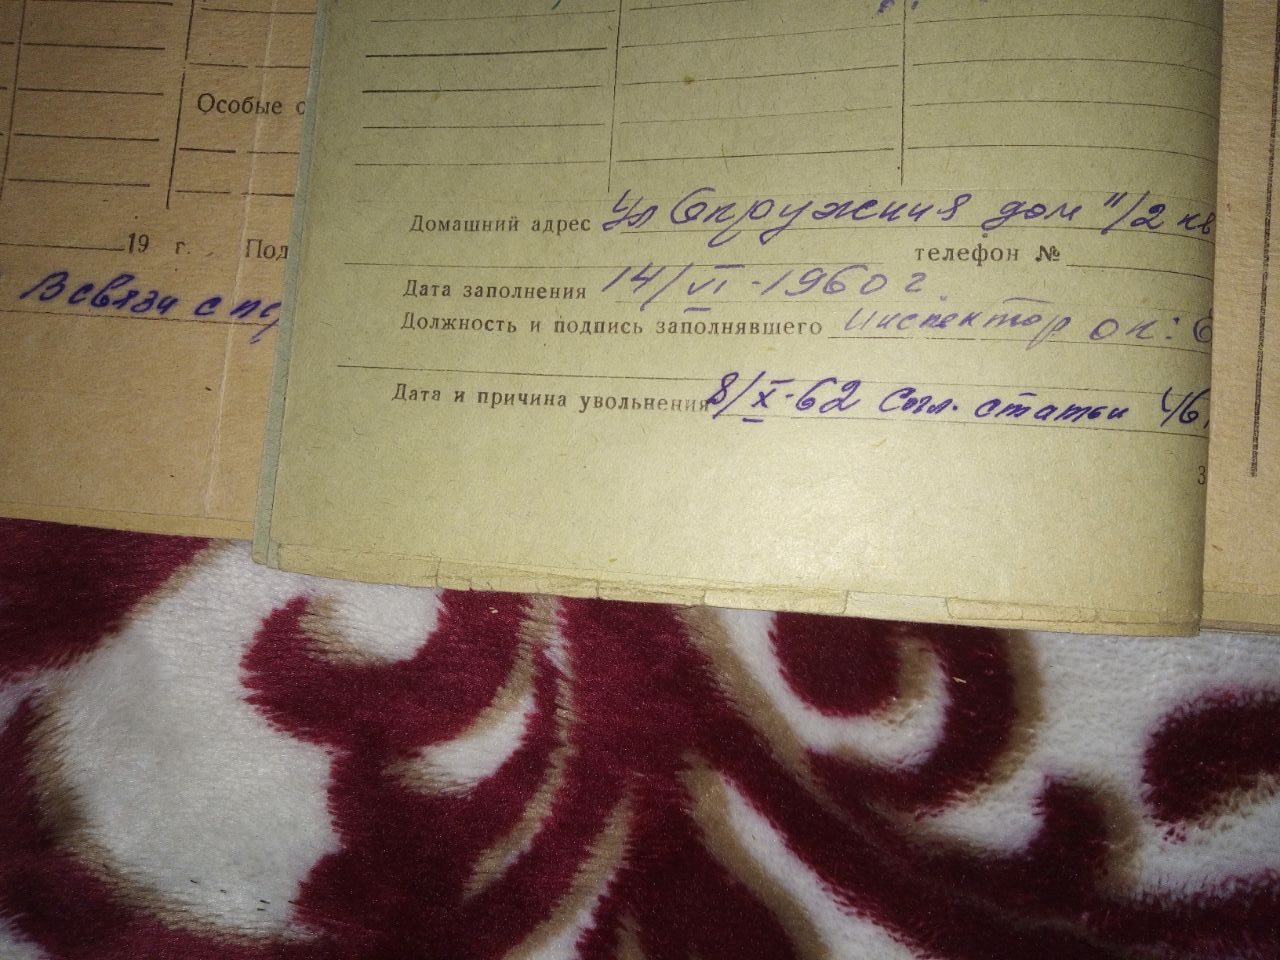 Особые о
19 г. Под
В связи с пе
Домашний адрес ул дом 11/2 кв
телефон №
Дата заполнения 14/VI-1960 г.
Должность и подпись заполнявшего Инспектор ок:
Дата и причина увольнения 8/X-62 Согл. статьи 46
3